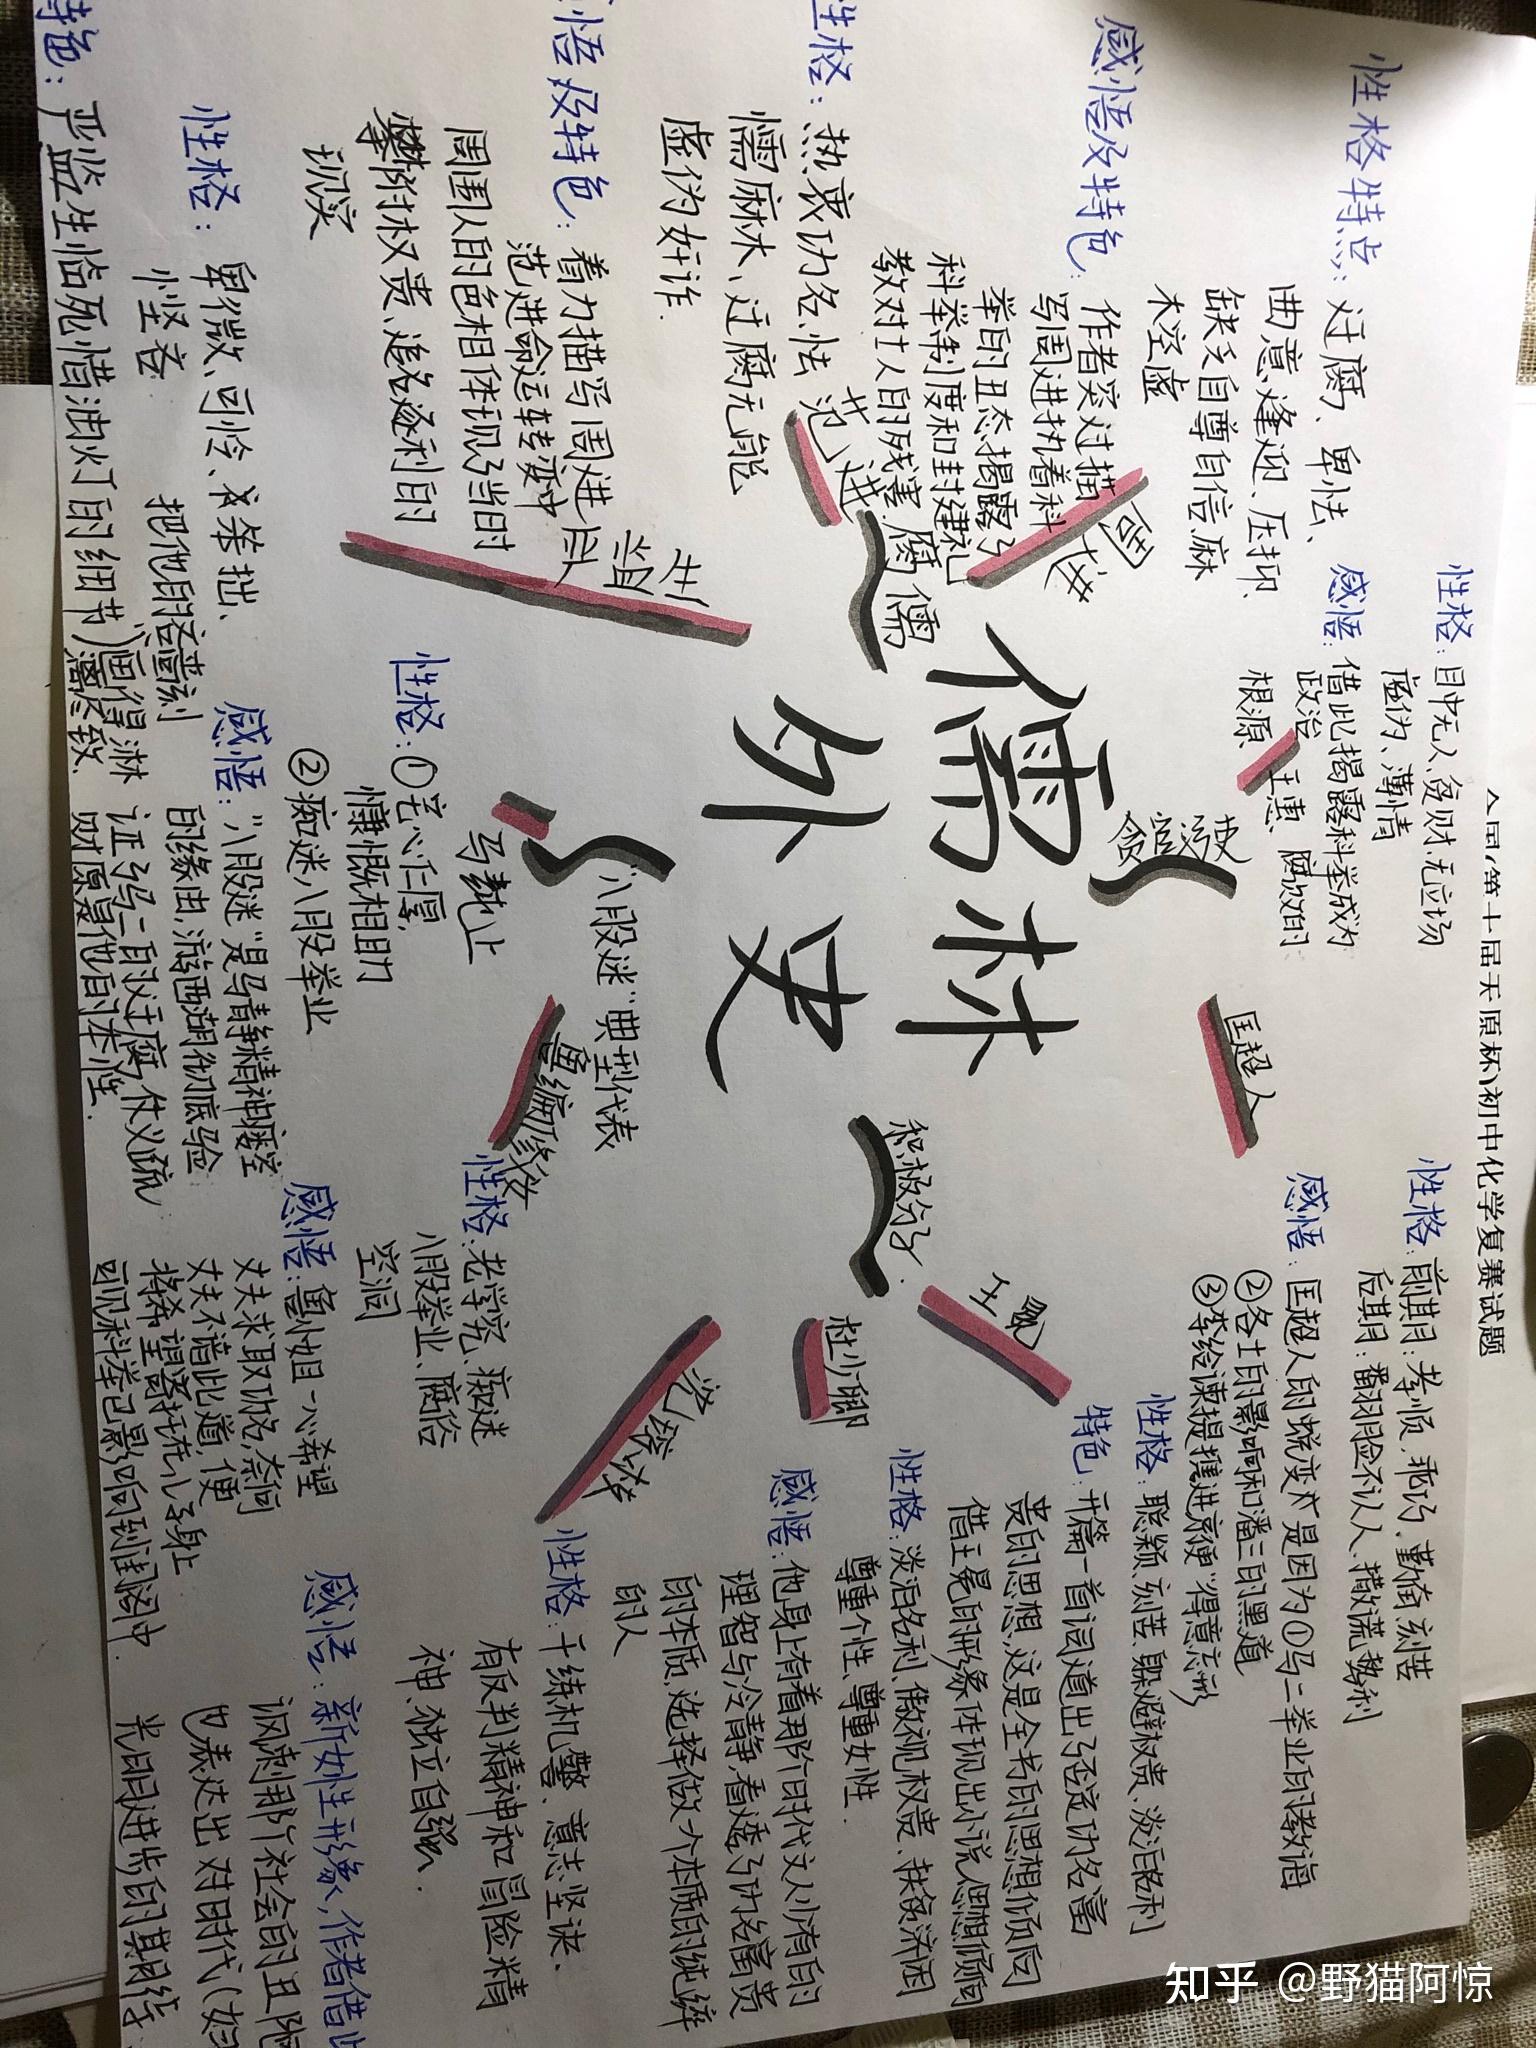 儒林
外史
腐儒
周进
性格特点：迂腐、卑怯、
曲意逢迎、压抑、
缺乏自尊自信、麻
木空虚
感悟及特色：作者突过描
写周进执着科
举的丑态，揭露了
科举制度和封建礼
教对士人的残害
范进
性格：热衷功名、怯
懦麻木、迂腐无能
虚伪奸诈.
感悟及特色：着力描写周进
范进命运转变中
周围人的色相体现了当时
攀附权贵、追名逐利的
现实
严监生
性格：卑微、可怜、笨拙、
悭吝
特色：严监生临死惜油灯的细节
把他的吝啬刻
画得淋
漓尽致.
贪官污吏
王惠
性格：目中无人、贪财、无立场
虚伪、薄情
感悟：借此揭露科举成为
政治
腐败的
根源
匡超人
性格：前期：孝顺、乖巧、勤奋刻苦
后期：翻脸不认人、撒谎、势利
感悟：匡超人的蜕变是因为①马二举业的教诲
②各士的影响和潘三的黑道
③李给谏提携进京便“得意忘形
“八股迷”典型代表
马纯上
性格：①宅心仁厚，
慷慨相助
②痴迷八股举业
感悟：“八股迷”是马静精神空
的缘由，游西湖彻底验
证马二的迂腐，仗义疏
财原是他的本性.
鲁编修女
性格：老学究、痴迷
八股举业、腐俗
空洞
感悟：鲁小姐一心希望
丈夫求取功名，奈何
丈夫不谙此道，便
将希望寄托在儿子身上
可见科举已影响到闺阁中.
积极分子.
王冕
性格：聪颖、刻苦、躲避权贵、淡泊名利
特色：开篇一首词道出了否定功名富
贵的思想，这是全书的思想倾向
借王冕的形象体现出小说思想倾向
杜少卿
性格：淡泊名利、傲视权贵、扶贫济困
尊重个性、尊重女性.
感悟：他身上有着那个时代文人少有的
理智与冷静，看透了功名富贵
的本质，选择做一个本质的纯粹
的人
沈琼枝
性格：干练机警、意志坚决、
有反判精神和冒险精
神、独立自强.
感悟：新女性形象，作者借此
讽刺那个社会的丑陋
也表达出对时代(妇
光明进步的期待.
(第十届天原杯)初中化学复赛试题
知乎 @野猫阿惊